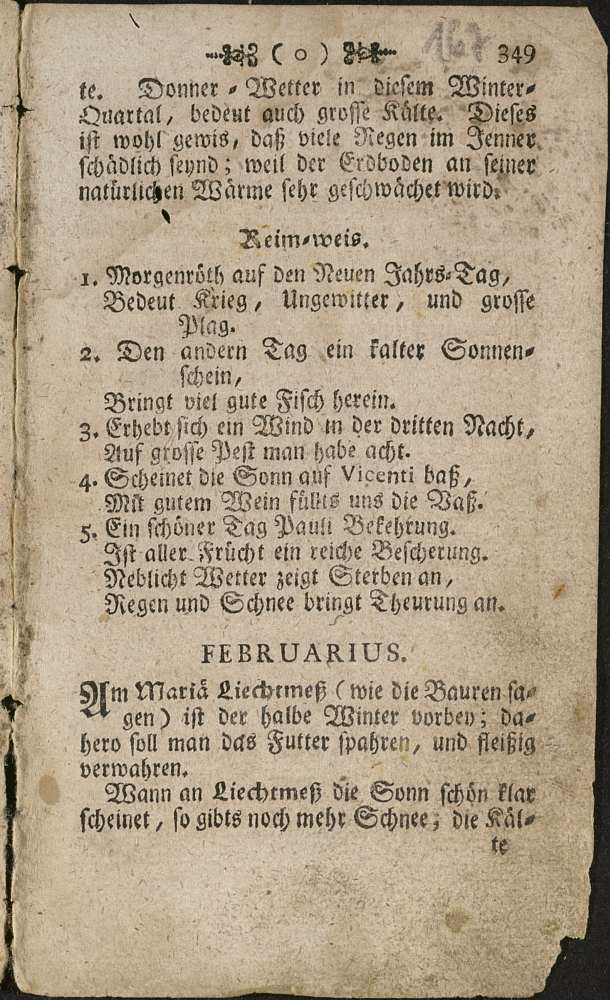 ( o ) 167 349
te. Donner-Wetter in diesem Winter-
Quartal, bedeut auch grosse Kälte. Dieses
ist wohl gewis, daß viele Regen im Jenner
schädlich seynd; weil der Erdboden an seiner
natürlichen Wärme sehr geschwächet wird.
Reim-weis.
1. Morgenröth auf den Neuen Jahrs-Tag,
Bedeut Krieg, Ungewitter, und grosse
Plag.
2. Den andern Tag ein kalter Sonnen-
schein,
Bringt viel gute Fisch herein.
3. Erhebt sich ein Wind in der dritten Nacht,
Auf grosse Pest man habe acht.
4. Scheinet die Sonn auf Vicenti baß,
Mit gutem Wein füllts uns die Vaß.
5. Ein schöner Tag Pauli Bekehrung.
Ist aller Frücht ein reiche Bescherung.
Neblicht Wetter zeigt Sterben an,
Regen und Schnee bringt Theurung an.
FEBRUARIUS.
Am Mariä Liechtmeß (wie die Bauren sa-
gen) ist der halbe Winter vorbey; da-
hero soll man das Futter spahren, und fleißig
verwahren.
Wann an Liechtmeß die Sonn schön klar
scheinet, so gibts noch mehr Schnee; die Käl-
te